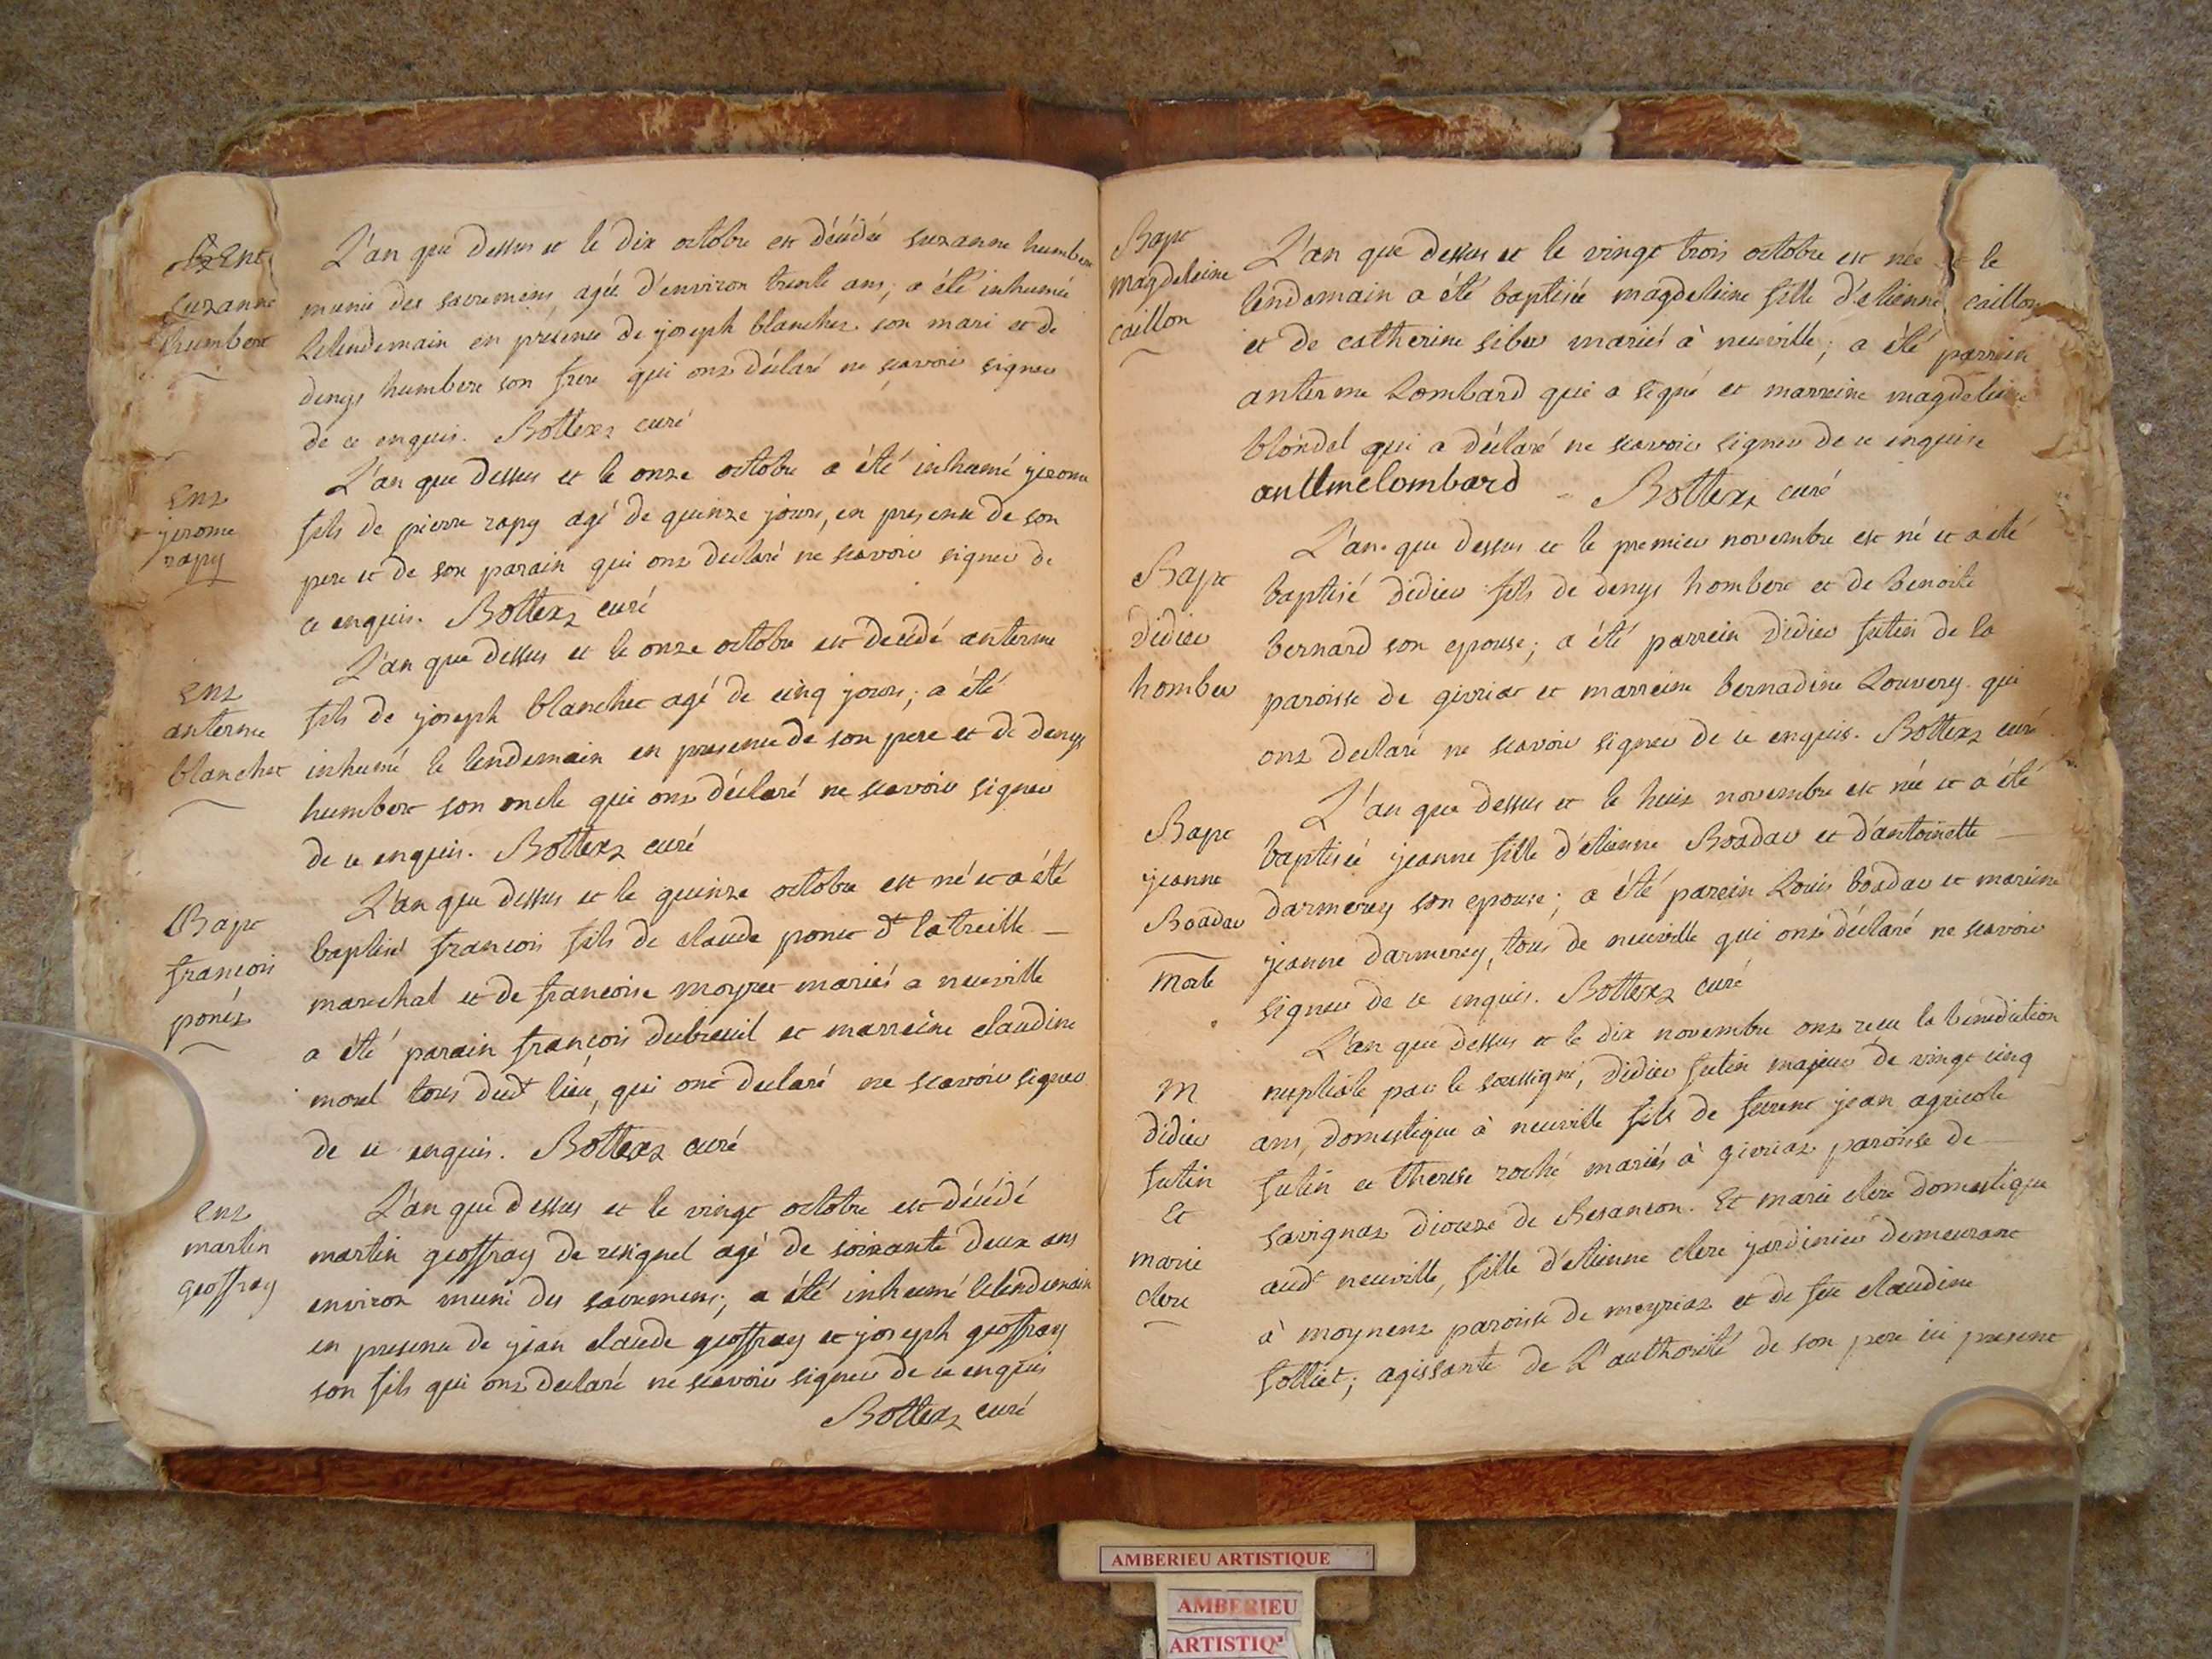 Ent
suzanne
humbert
L'an que dessus et le dix octobre est décédée suzanne humbert
munie des sacremens, agée d'environ trente ans; a été inhumée
lelendemain en présence de joseph blanchet son mari et de
denys humbert son frere qui ont déclaré ne scavoir signer
de ce enquis. Bottex curé
Ent
jerome
rapy
L'an que dessus et le onze octobre a été inhumé jerome
fils de pierre rapy agé de quinze jours, en presence de son
pere et de son parain qui ont declaré ne scavoir signer de
ce enquis. Bottex curé
Ent
anterme
blanchet
L'an que dessus et le onze octobre est decédé anterme
fils de joseph blanchet agé de cinq jours; a été
inhumé le lendemain en presence de son pere et de denys
humbert son oncle qui ont déclaré ne scavoir signer
de ce enquis. Bottex curé
Bapt
francois
ponét
L'an que dessus et le quinze octobre est né et a été
baptisé francois fils de claude ponet dt latreille
marechal et de francoise moyret mariés a neuville
a été parain francois dubreuil et marreine claudine
morel tous dudt lieu, qui ont declaré ne scavoir signer
de ce enquis. Bottex curé
ent
martin
geoffray
L'an que dessus et le vingt octobre est décédé
martin geoffray de resignel agé de soixante deux ans
environ muni des sacremens; a été inhumé lelendemain
en presence de jean claude geoffray et joseph geoffray
son fils qui ont declaré ne scavoir signer de ce enquis
Bottex curé
Bapt
magdeleine
caillon
L'an que dessus et le vingt trois octobre est née et le
lendemain a été baptisée magdeleine fille d'etienne caillon
et de catherine siber mariés à neuville; a été parrein
anterme Lombard qui a signé et marreine magdeleine
blondel qui a déclaré ne scavoir signer de ce enquise
antlmelombard Bottex curé
Bapt
didier
homber
L'an que dessus et le premier novembre est né et a été
baptisé didier fils de denys hombert et de benoite
bernard son epouse; a été parrein didier futin de la
paroisse de givriat et marreine bernadine Louvery qui
ont declaré ne scavoir signer de ce enquis. Bottex curé
Bapt
jeanne
Boadar
Morte
L'an que dessus et le huit novembre est née et a été
baptisée jeanne fille d'étienne Boadar et d'antoinette
darmerey son epouse; a été parein Louis boadar et mareine
jeanne darmerey, tous de neuville qui ont déclaré ne scavoir
signer de ce enquis. Bottex curé
M
didier
futin
Et
marie
clere
L'an que dessus et le dix novembre ont reçu la benediction
nuptiale par le soussigné, didier futin majeur de vingt cinq
ans, domestique à neuville fils de feurent jean agricole
futin et therese roché mariés à givriaz paroisse de
savignaz diocese de Besancon. Et marie clere domestique
audt neuville, fille d'etienne clere jardinier demeurant
à moynent paroisse de meyriaz et de feue claudine
folliet; agissante de L'authorité de son pere ici present
AMBERIEU ARTISTIQUE
AMBERIEU
ARTISTIQ